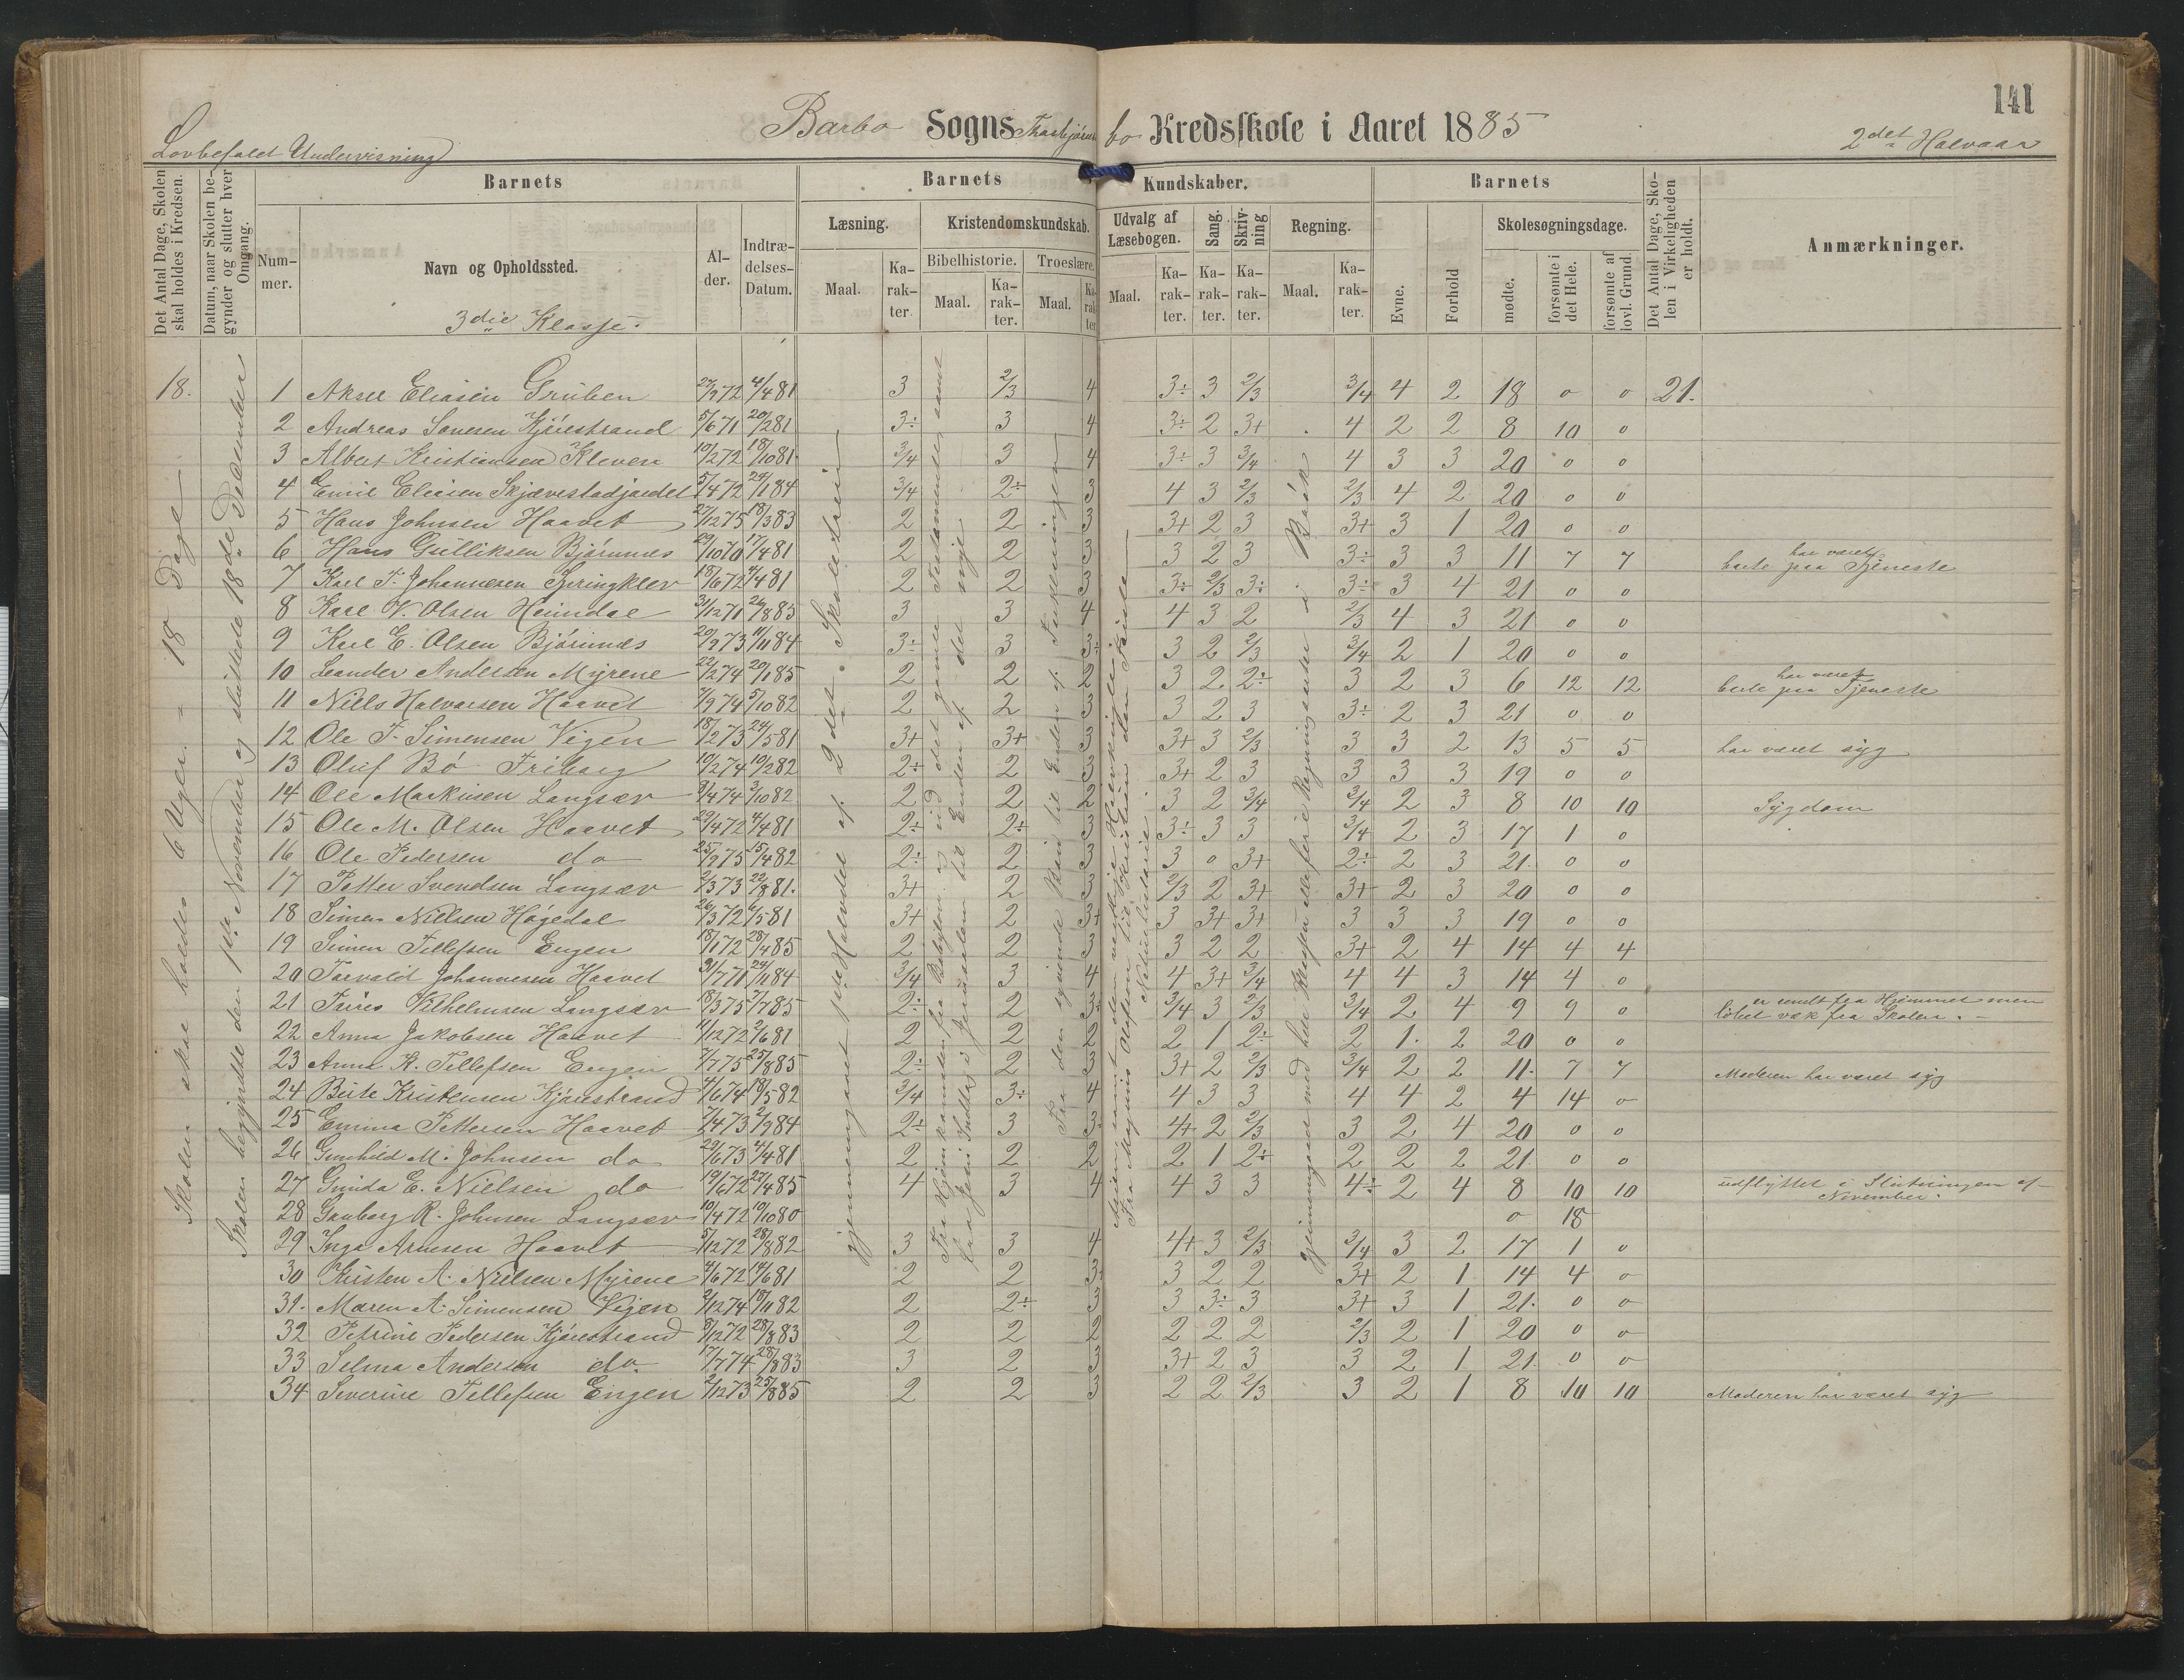 141
Barbo Sogns Kredsskole i Aaret 1885
Lovbefalet Undervisning
2det Halvaar
Det Antal Dage, Skolen skal holdes i Kredsen.
Datum, naar Skolen begynder og slutter hver Omgang.
Barnets
Barnets
Kundskaber.
Barnets
Det Antal Dage, Skolen i Virkeligheden er holdt.
Anmærkninger.
Nummer.
Navn og Opholdssted.
Alder.
Indtrædelses-Datum.
Læsning.
Kristendomskundskab.
Bibelhistorie.
Troeslære.
Udvalg af Læsebogen.
Sang.
Skrivning
Regning.
Evne.
Forhold
Skolesøgningsdage.
mødte.
forsømte i det Hele.
forsømte af lovl. Grund.
Maal. Karakter. Maal. Karakter. Maal. Karakter
Maal. Karakter. Karakter. Karakter. Maal. Karakter.
3die Klasse.
Skolen skal holdes 6 Uger = 18 Dage
Skolen begyndte den November og sluttede 18de December
gjennemgaaet Halvdel af 2det Skoletrin
18. 1 Aksel Eliasen Gruben 27/9 72 4/4 81 3 2/3 4 3÷ 3 2/3 3/4 4 2 18 0 0 21.
2 Andreas Kjørestrand 5/6 71 20/2 81 3÷ 3 4 3÷ 2 3+ 4 2 2 8 10 0
3 Albert Kristiansen Kleven 19/2 72 18/10 81 3/4 3 4 3÷ 3 3/4 4 3 3 20 0 0
4 Emil Eliasen 5/4 72 3/4 2÷ 3 4 3 2/3 2/3 4 2 20 0 0
5 Hans Johnsen Haavet 27/12 75 18/3 83 2 2 3 3+ 2 3 3+ 3 1 20 0 0
6 Hans Gulliksen Bjørnnes 29/10 70 17/4 81 2 2 3 3 2 3 3÷ 3 3 11 7 7 har været borte paa Tjeneste
7 Karl F. Johannesen Springklev 18/6 72 4/4 81 2 2 3 3÷ 2/3 3÷ 3÷ 3 4 21 0 0
8 Karl V. Olsen Heimdal 31/12 71 3 3 4 4 3 2 2/3 4 3 21 0 0
9 Karl E. Olsen Bjørnnes 20/9 73 11/11 84 3÷ 3 3÷ 3 2 2/3 3/4 2 1 20 0 0
10 Leander Andersen Myrene 22/2 74 20/1 85 2 2 2 3 2 2÷ 3 2 3 6 12 12 har været borte paa Tjeneste
11 Niels Halvorsen Haavet 7/9 74 5/10 82 2 2 3 3 2 3 3÷ 2 3 21 0 0
12 Ole F. Simensen Vigen 18/2 73 24/5 81 3+ 3+ 3 3+ 3 2/3 3 3 2 13 5 5 har været syg
13 Oluf Bø Friborg 10/2 74 19/2 82 2÷ 2 3 3+ 2 3 3 3 3 19 0 0
14 Ole Markusen Langsæv 3/4 74 2/10 82 2 2 2 3 2 3/4 3/4 2 3 8 10 10 Sygdom
15 Ole M. Olsen Haavet 29/4 72 4/4 81 2÷ 2÷ 3 3÷ 3 3 3/4 2 3 17 1 0
16 Ole Pedersen do 25/9 75 15/4 82 2÷ 2 3 3 0 3+ 2÷ 2 3 21. 0 0
17 Petter Svendsen Langsæv 2/3 73 22/8 81. 3+ 2 3 2/3 2 3+ 3+ 2 3 20 0 0
18 Simen Nielsen Høgedal 26/3 72 6/5 81 3+ 2 3+ 3 3+ 3+ 3 3 3 19 0 0
19 Simen Tellefsen Engen 18/1 72 28/4 85 2 2 3 3 2 2 3+ 2 4 14 4 4
20 Torvald Johannesen Haavet 31/7 71 24/11 84 3/4 3 4 4 3+ 3/4 4 4 3 14 4 0
21 Vilhelmsen Langsæv 18/3 75 2/7 85 2÷ 2 3÷ 3/4 3 2/3 3/4 2 4 9 9 0 er sendt fra Hjemmet men løbet væk fra Skolen. –
22 Anna Jakobsen Haavet 11/12 72 2/6 81 2 2 2 2 1 2÷ 2 1. 2 20 0 0
23 Anna K. Tellefsen Engen 7/7 75 25/8 85 2÷ 2 3 3+ 2 2/3 3/4 2 2 11. 7 7 Moderen har været syg
24 Kristensen Kjørestrand 4/6 74 18/5 82 3/4 3÷ 4 4 3 3 4 4 2 4 14 0
25 Emma Pettersen Haavet 7/4 73 2/9 84 2÷ 3 3÷ 4+ 2 2/3 3 2 4 20 0 0
26 Gunhild M. Johnsen do 29/6 73 4/4 81 2 2 2 2 1 2÷ 2 2 2 21 0 0
27 Gunda E. Nielsen do 19/6 72 27/4 85 4 3 4 4 3 3 4÷ 2 4 8 10 10 udflyttet i Slutningen af November.
28 Gunborg R. Johnsen Langsæv 10/4 72 19/10 80 0 18
29 Inga Arnesen Haavet 5/12 72 28/8 82 3 3 4 4+ 3 2/3 3/4 3 2 17 1 0
30 Kirsten A. Nielsen Myrene 4/6 72 14/6 81 2 2 3÷ 3 2 2 3+ 2 1 14 4 0
31. Maren A. Simensen Vigen 2/12 74 18/11 82 2 2÷ 3 3 3÷ 3 3+ 3 1 21. 0 0
32 Petrine Pedersen Kjørestrand 5/12 72 28/8 83 2 2 2 2 2 2 2/3 2 1 20 0 0
33 Selma Andersen do. 17/7 74 28/8 83 3 2 3 3+ 2 3 3 2 1 21. 0 0
34 Severine Tellefsen Engen 2/12 73 25/8 85 2 2 3 2 2 2/3 3 2 1 8 10 10 Moderen har været syg